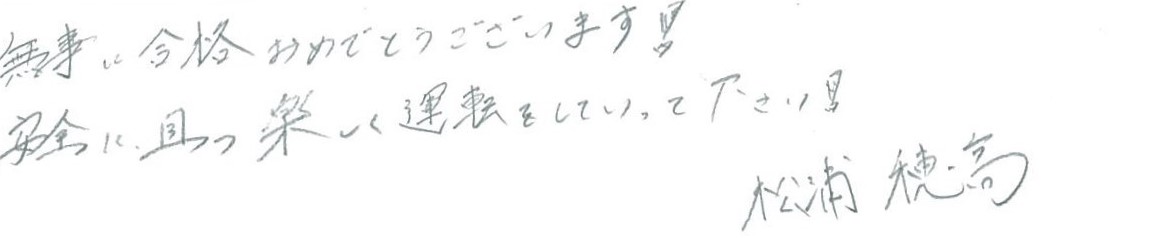 無事に合格おめでとうございます!!
安全に、且つ楽しく運転をしていって下さい!!
松浦 穂高